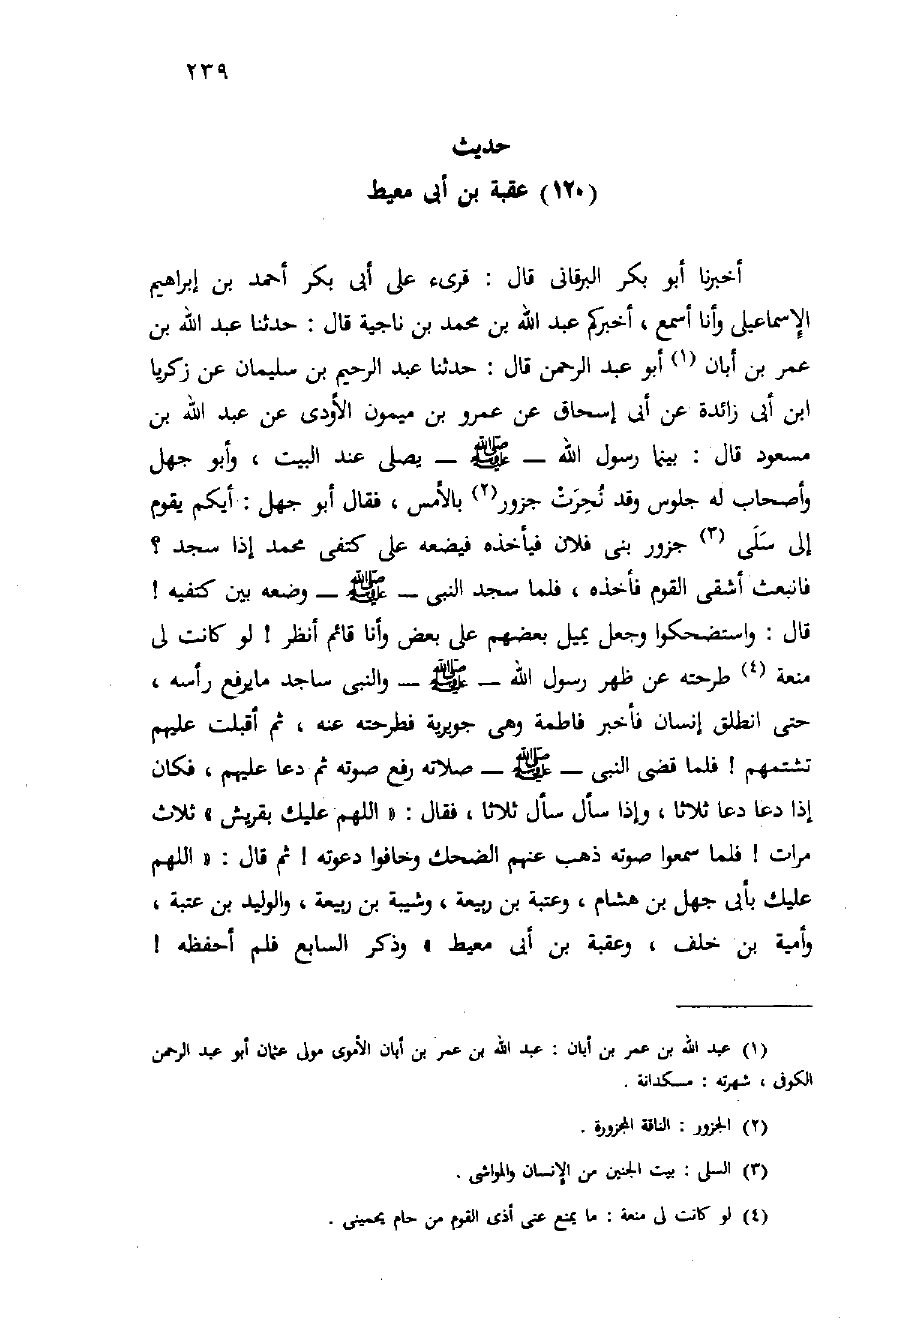 ٢٣٩
حديث
(١٢٠) عقبة بن أبى معيط
أخبرنا أبو بكر البرقانى قال : قرىء على أبى بكر أحمد بن إبراهيم
الإسماعيلى وأنا أسمع ، أخبركم عبد الله بن محمد بن ناجية قال : حدثنا عبد الله بن
عمر بن أبان (١) أبو عبد الرحمن قال : حدثنا عبد الرحيم بن سليمان عن زكريا
ابن أبى زائدة عن أبى إسحاق عن عمرو بن ميمون الأودى عن عبد الله بن
مسعود قال : بينما رسول الله ــ ﷺ ــ يصلى عند البيت ، وأبو جهل
وأصحاب له جلوس وقد نُحِرَتْ جزور(٢) بالأمس ، فقال أبو جهل : أيكم يقوم
إلى سَلَى (٣) جزور بنى فلان فيأخذه فيضعه على كتفى محمد إذا سجد ؟
فانبعث أشقى القوم فأخذه ، فلما سجد النبى ــ ﷺ ــ وضعه بين كتفيه !
قال : واستضحكوا وجعل يميل بعضهم على بعض وأنا قائم أنظر ! لو كانت لى
منعة (٤) طرحته عن ظهر رسول الله ــ ﷺ ــ والنبى ساجد مايرفع رأسه ،
حتى انطلق إنسان فأخبر فاطمة وهى جويرية فطرحته عنه ، ثم أقبلت عليهم
تشتمهم ! فلما قضى النبى ــ ﷺ ــ صلاته رفع صوته ثم دعا عليهم ، فكان
إذا دعا دعا ثلاثا ، وإذا سأل سأل ثلاثا ، فقال : « اللهم عليك بقريش » ثلاث
مرات ! فلما سمعوا صوته ذهب عنهم الضحك وخافوا دعوته ! ثم قال : « اللهم
عليك بأبى جهل بن هشام ، وعتبة بن ربيعة ، وشيبة بن ربيعة ، والوليد بن عتبة ،
وأمية بن خلف ، وعقبة بن أبى معيط » وذكر السابع فلم أحفظه !
(١) عبد الله بن عمر بن أبان : عبد الله بن عمر بن أبان الأموى مولى عثمان أبو عبد الرحمن
الكوفى ، شهرته : مسكدانة .
(٢) الجزور : الناقة المجزورة .
(٣) السلى : بيت الجنين من الإنسان والمواشى .
(٤) لو كانت لى منعة : ما يمنع عنى أذى القوم من حام يحمينى .